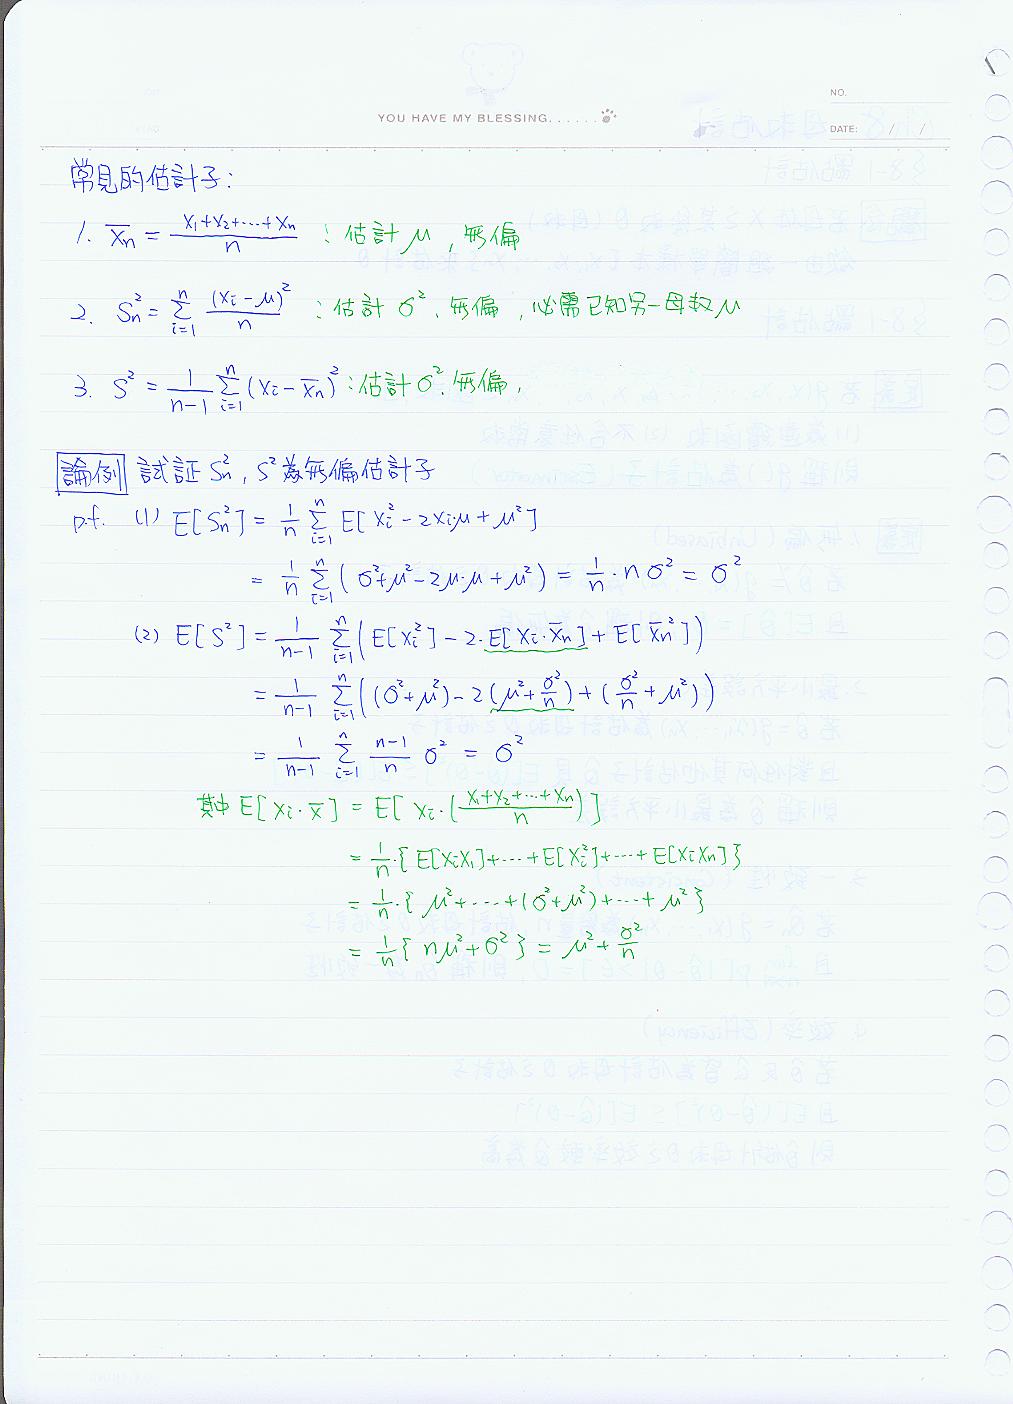 NO.
YOU HAVE MY BLESSING......
DATE: / /
常見的估計子:
1. X̄n = (X1+X2+⋯+Xn)/n :估計 μ, 無偏
2. Sn² = Σ_{i=1}^{n} (Xi-μ)²/n :估計 σ², 無偏, 必需已知另一母数 μ
3. S² = 1/(n-1) Σ_{i=1}^{n} (Xi-X̄n)² :估計 σ², 無偏,
論例 試証 Sn², S² 為無偏估計子
p.f. (1) E[Sn²] = 1/n Σ_{i=1}^{n} E[Xi²-2Xiμ+μ²]
= 1/n Σ_{i=1}^{n} (σ²+μ²-2μ·μ+μ²) = 1/n · nσ² = σ²
(2) E[S²] = 1/(n-1) Σ_{i=1}^{n} (E[Xi²]-2·E[Xi·X̄n]+E[X̄n²])
= 1/(n-1) Σ_{i=1}^{n} ((σ²+μ²)-2(μ²+σ²/n)+(σ²/n+μ²))
= 1/(n-1) Σ_{i=1}^{n} (n-1)/n σ² = σ²
其中 E[Xi·X̄] = E[Xi·((X1+X2+⋯+Xn)/n)]
= 1/n·{E[XiX1]+⋯+E[Xi²]+⋯+E[XiXn]}
= 1/n·{μ²+⋯+(σ²+μ²)+⋯+μ²}
= 1/n{nμ²+σ²} = μ²+σ²/n